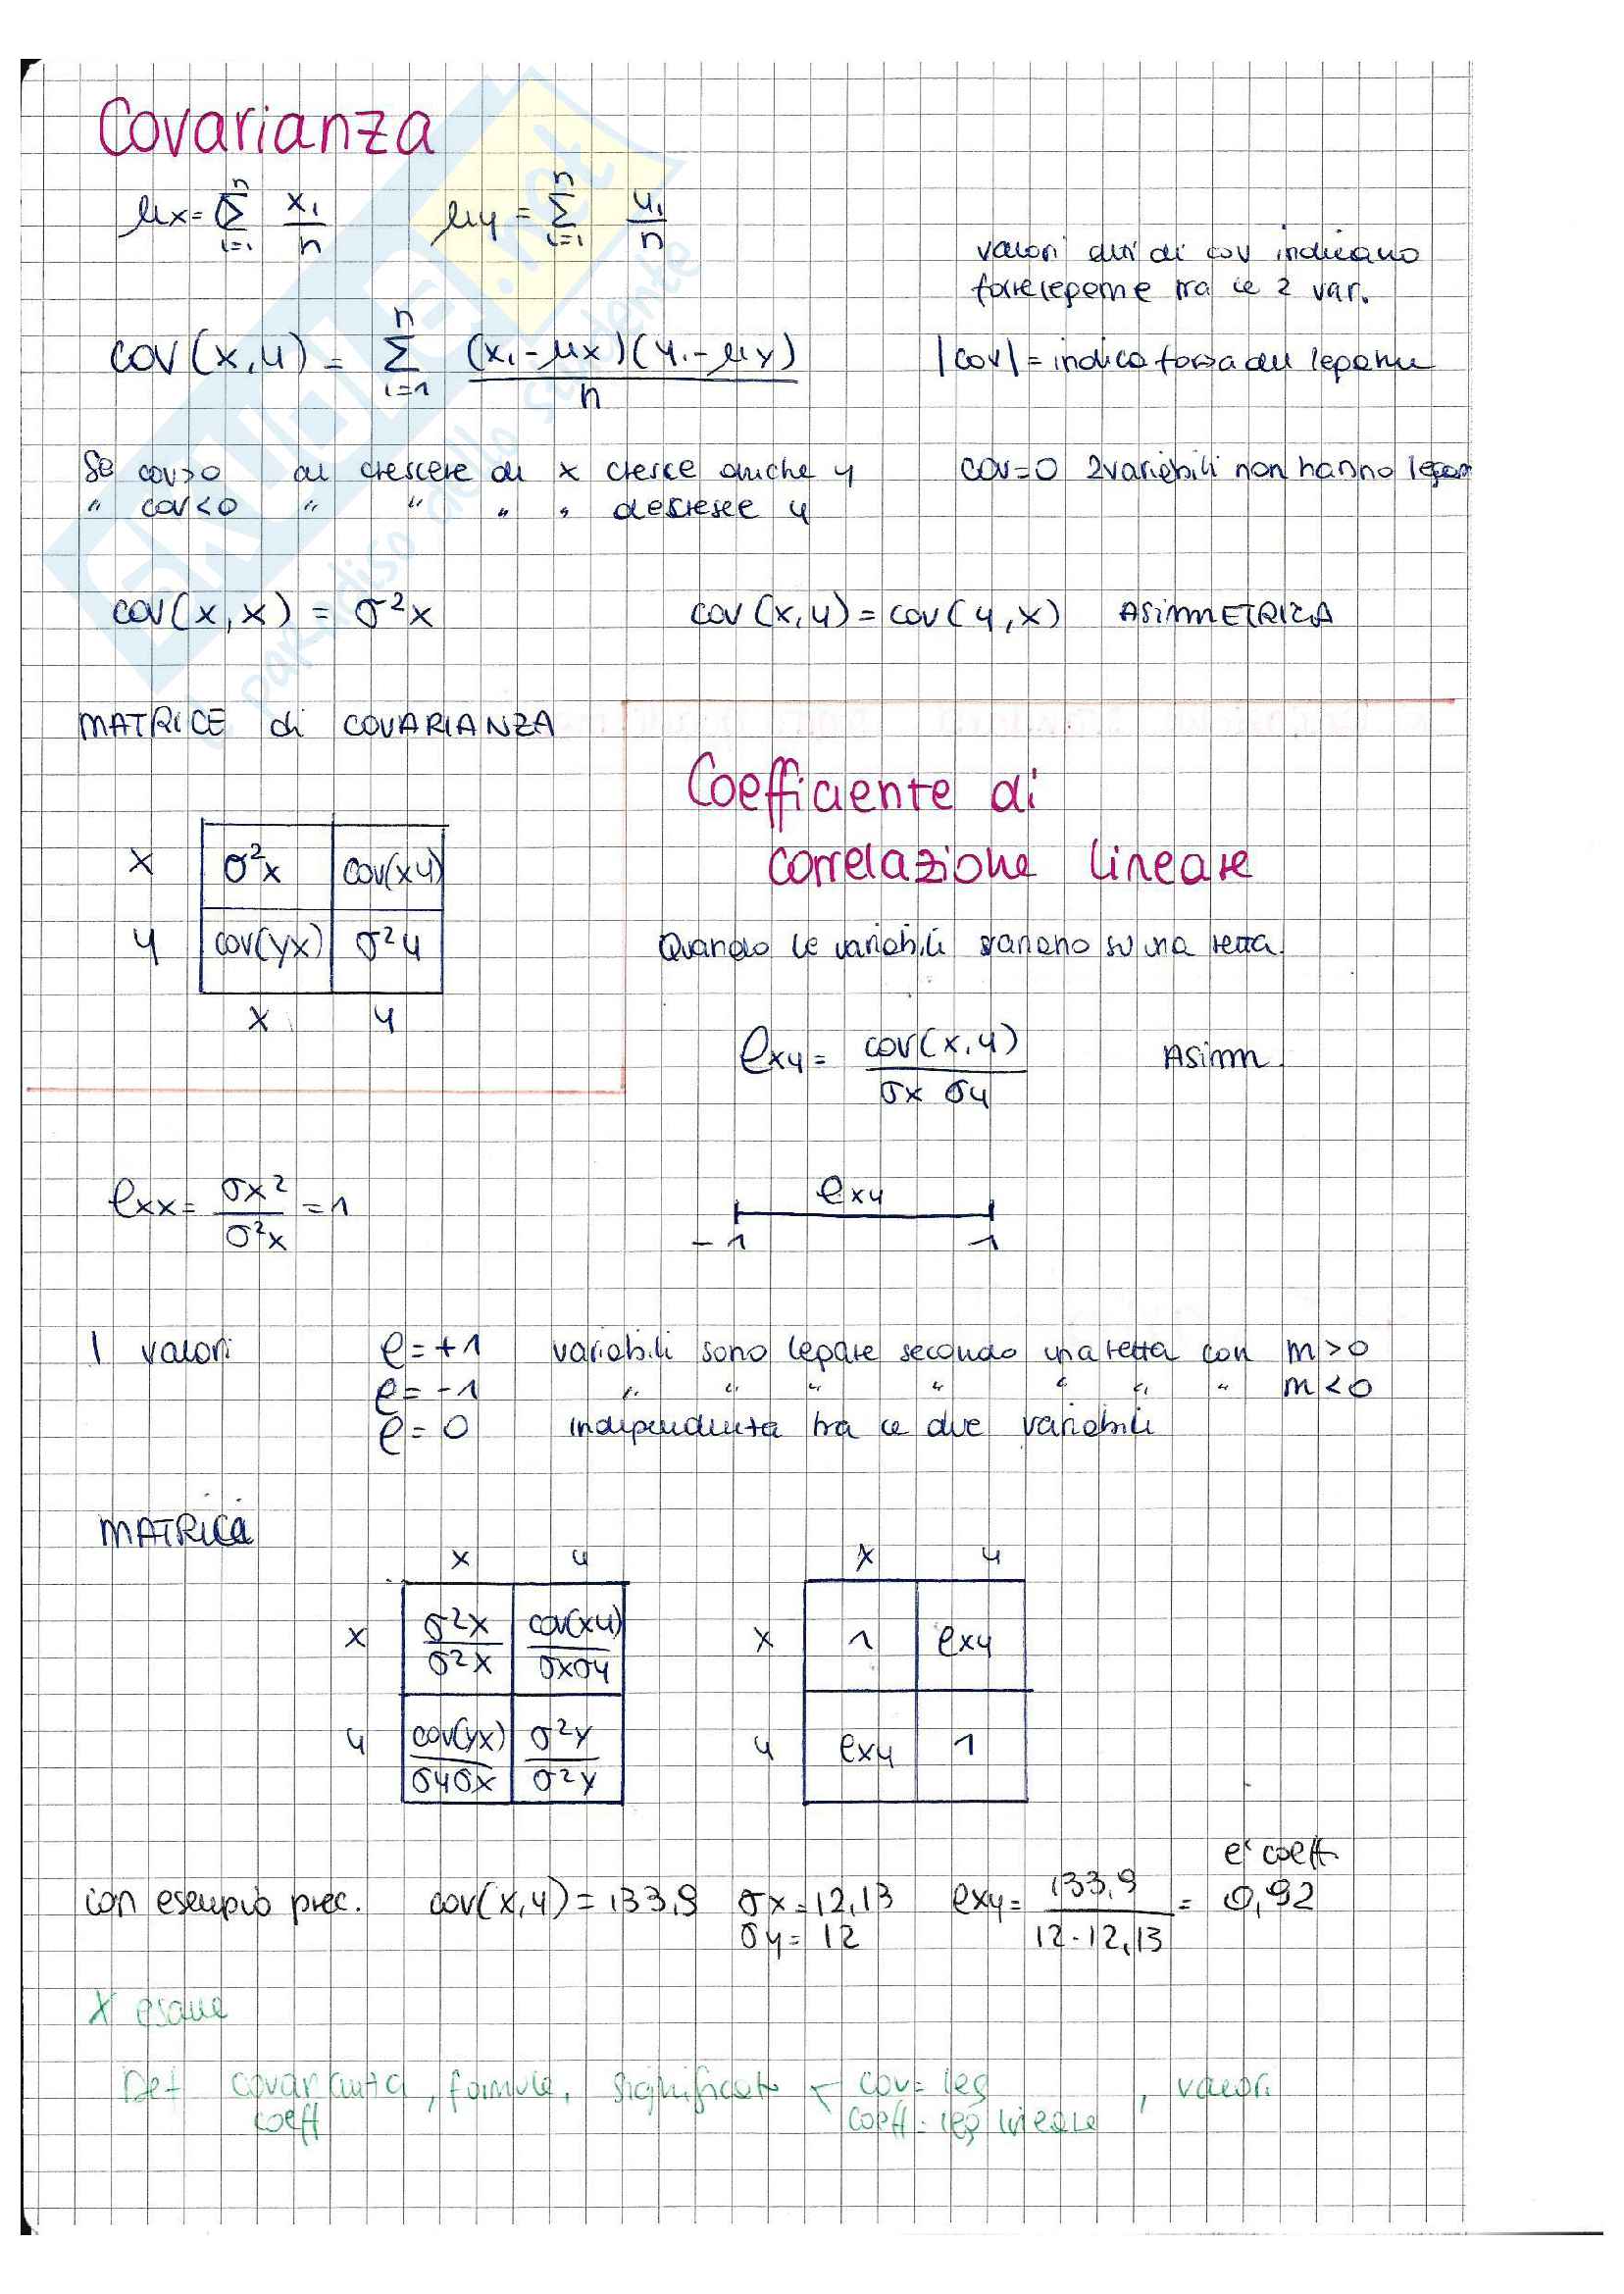 Covarianza
μx = Σ(i=1, n) xi/n    μy = Σ(i=1, n) yi/n
valori alti di cov indicano
forte legame tra le 2 var.
cov(x,y) = Σ(i=1, n) (xi-μx)(yi-μy)/n    |cov| = indica forza del legame
Se cov>0 al crescere di x cresce anche y    cov=0 2 variabili non hanno legam
" cov<0 " " " " decresce y
cov(x,x) = σ²x    cov(x,y) = cov(y,x) ASIMMETRICA
MATRICE di COVARIANZA
x σ²x cov(xy)
y cov(yx) σ²y
x y
Coefficiente di
correlazione lineare
Quando le variabili stanno su una retta.
ρxy = cov(x,y)/σx σy    Asimm.
ρxx = σx²/σ²x = 1
ρxy
-1 1
I valori ρ = +1 variabili sono legate secondo una retta con m>0
ρ = -1 " " " " " " " m<0
ρ = 0 indipendenza tra le due variabili
MATRICA
x y
x σ²x/σ²x cov(xy)/σxσy
y cov(yx)/σyσx σ²y/σ²y
x y
x 1 ρxy
y ρxy 1
e' coeff.
con esempio prec. cov(x,y) = 133,9 σx = 12,13 ρxy = 133,9/12·12,13 = 0,92
σy = 12
X esame
Def covarianza, formule, significato cov = leg , valori
coeff    coeff = leg lineare
SKUOLA.net
il paradiso dello studente